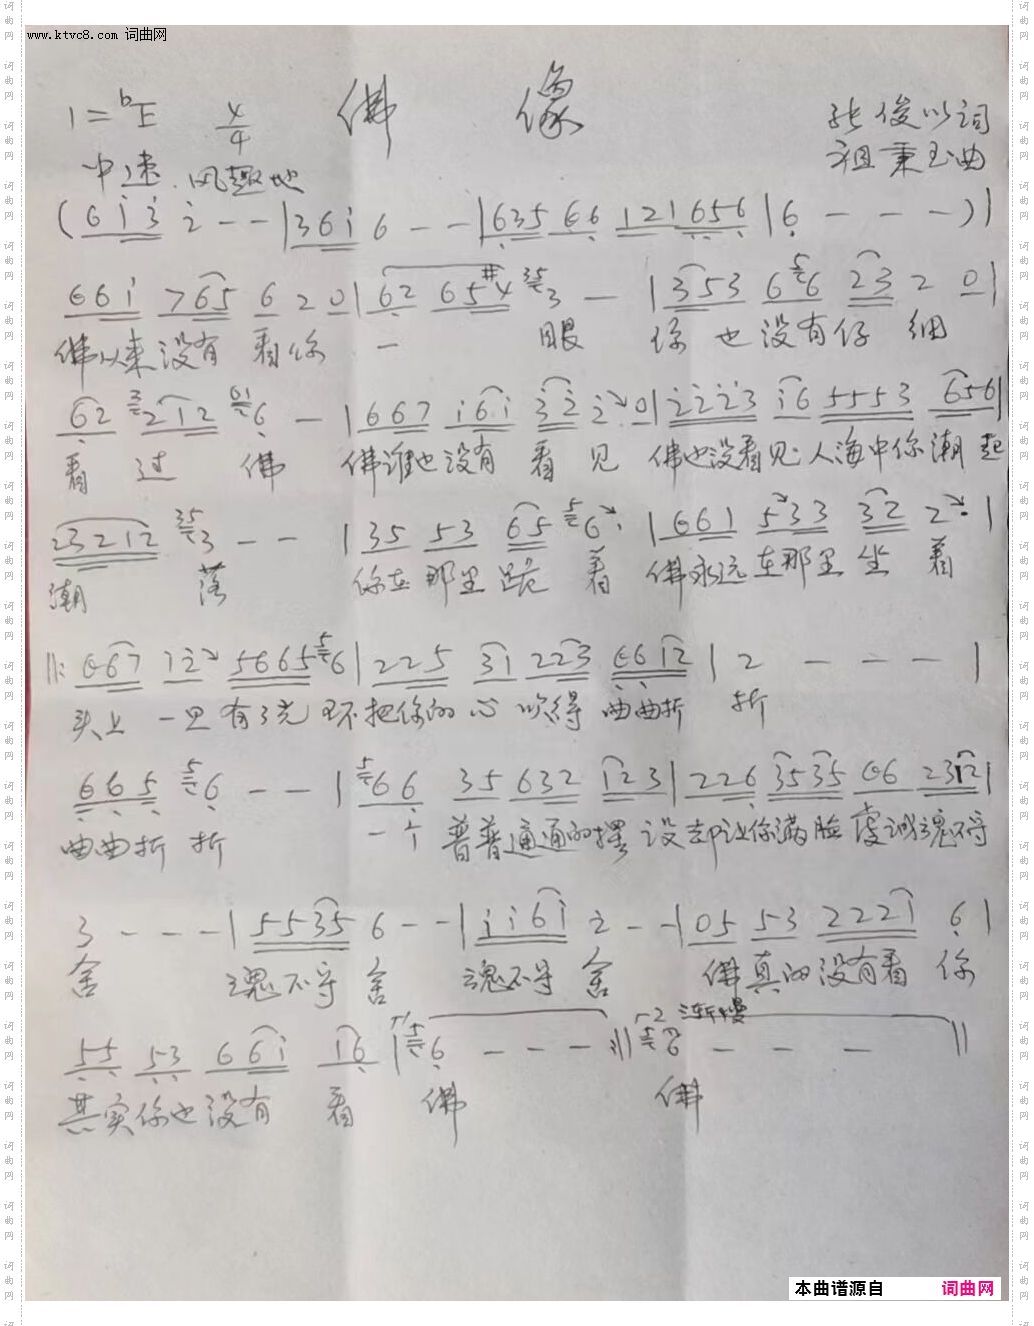 www.ktvc8.com 词曲网
1=bE 4/4 佛 像 张俊以词
中速.风趣地 祖秉玉曲
(6 1 3 2 - - | 3 6 1 6 - - | 6 3 5 6 6 1 2 1 6 5 6 | 6 - - - ) |
6 6 1 7 6 5 6 2 0 | 6 2 6 5 #4 35 3 - | 3 5 3 6 5 6 2 3 2 0 |
佛从来没有 看你 一 眼 你也没有仔 细
6 2 3 2 1 2 61 6 - | 6 6 7 1 6 1 3 2 2 0 | 2 2 2 3 1 6 5 5 5 3 6 5 6 |
看 过 佛 佛谁也没有 看 见 佛也没看见 人海中你潮 起
2 3 2 1 2 35 3 - - | 3 5 5 3 6 5 5 6 | 6 6 1 5 3 3 3 2 2 |
潮 落 你在那里跪 着 佛永远在那里坐 着
||: 6 6 7 1 2 5 6 6 5 5 6 | 2 2 5 3 1 2 2 3 6 6 1 2 | 2 - - - |
头上 一 有 光环把你的心 得曲曲折 折
6 6 5 5 6 - - | 5 6 6 3 5 6 3 2 1 2 3 | 2 2 6 3 5 3 5 6 6 2 3 1 2 |
曲曲折 折 一个 普普通通的摆 设却让你满脸虔诚魂不守
3 - - - | 5 5 3 5 6 - - | 1 1 6 1 2 - - | 0 5 5 3 2 2 2 1 6 |
舍 魂不守 舍 魂不守 舍 佛真的没有看 你
5 5 5 3 6 6 1 1 6 | 1 5 6 - - - :|| 2 渐慢 5 6 - - - ||
其实你也没有 看 佛 佛
本曲谱源自 词曲网